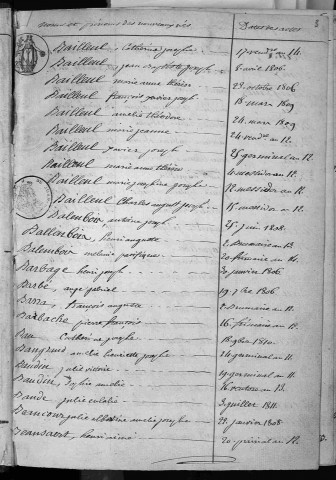 Noms et prénoms des nouveaux nés Dates des actes
Bailleul Catherine joseph 17 vend.re an 14.
Bailleul jean baptiste joseph 8 avril 1806.
Bailleul marie anne thérèse 29 octobre 1806
Bailleul françois xavier joseph 18 mars 1809
Bailleul amélie théodore 24 mars 1809
Bailleul marie jeanne 24 vend.re an 12.
Bailleul xavier joseph 25 germinal an 12.
Bailleul marie anne thérèse 4 messidor an 12.
Bailleul marie joséphine josephe 12 messidor an 12.
Bailleul Charles august joseph 15 messidor an 12.
Balembois antoine joseph 25 juin 1808.
Ballenbois henri auguste 2 brumaire an 12.
Balembois mélanie pacifique 20 frimaire an 14.
Barbage henri joseph 3 janvier 1806
Barbé angé gabriel 19 7bre 1806.
Barra françois auguste 2 brumaire an 12.
Barbache pierre françois 16 frimaire an 12.
Bau Catherine joseph 18 9bre 1810.
Bangrand amélie henriette joseph 24 germinal an 12.
Baudin julie victoire 19 germinal an 12.
Baudin sophie amélie 16 ventose an 13.
Baude julie eulalie 3 juillet 1811.
Beaucour julie albertine amélie josephe 22 janvier 1808.
henri aimé 20 prairial an 12.